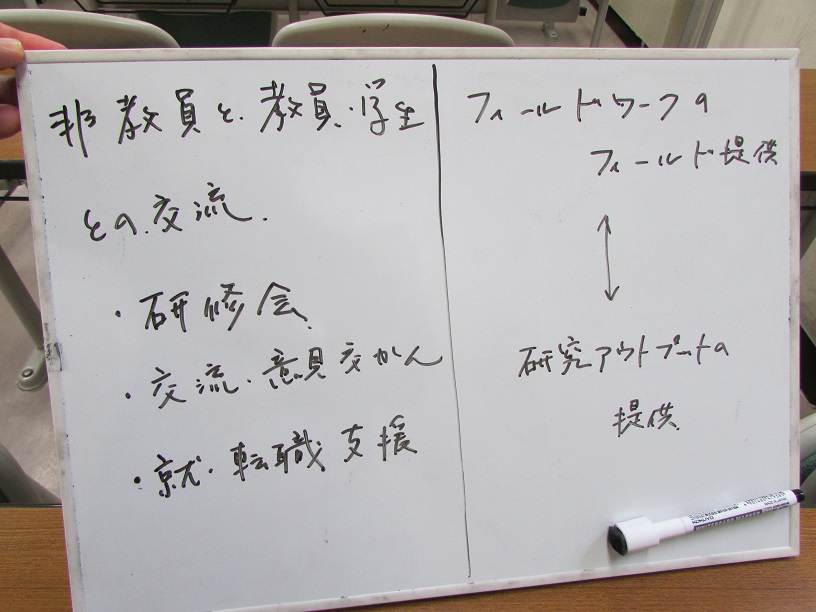 非教員と、教員・学生
との交流.
・研修会
・交流・意見交かん
・就・転職支援
フィールドワークの
フィールド提供
研究アウトプットの
提供